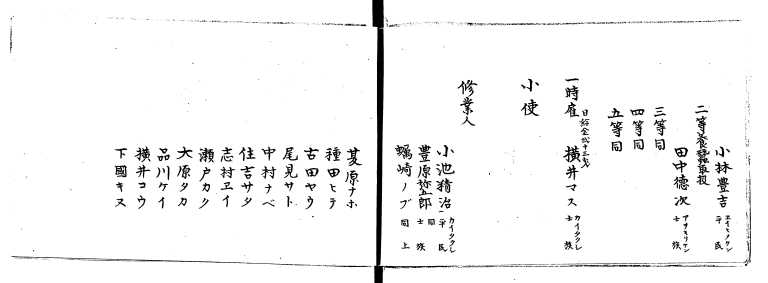 小林豊吉 エヒメケン 平民
二等養蚕取扱
田中徳次 アオモリケン 士族
三等同
四等同
五等同
一時雇 日給金弐十三銭 横井マス カイタクシ 士族
小使
修業人
小池精治 カイタクシ 平民
豊原弥五郎 同 士族
蠣崎ノブ 同上
菱原ナホ
種田ヒテ
古田ヤウ
尾見サト
中村ナベ
住吉サタ
志村ヱイ
瀬戸カク
大原タカ
品川ケイ
横井コウ
下國キヌ